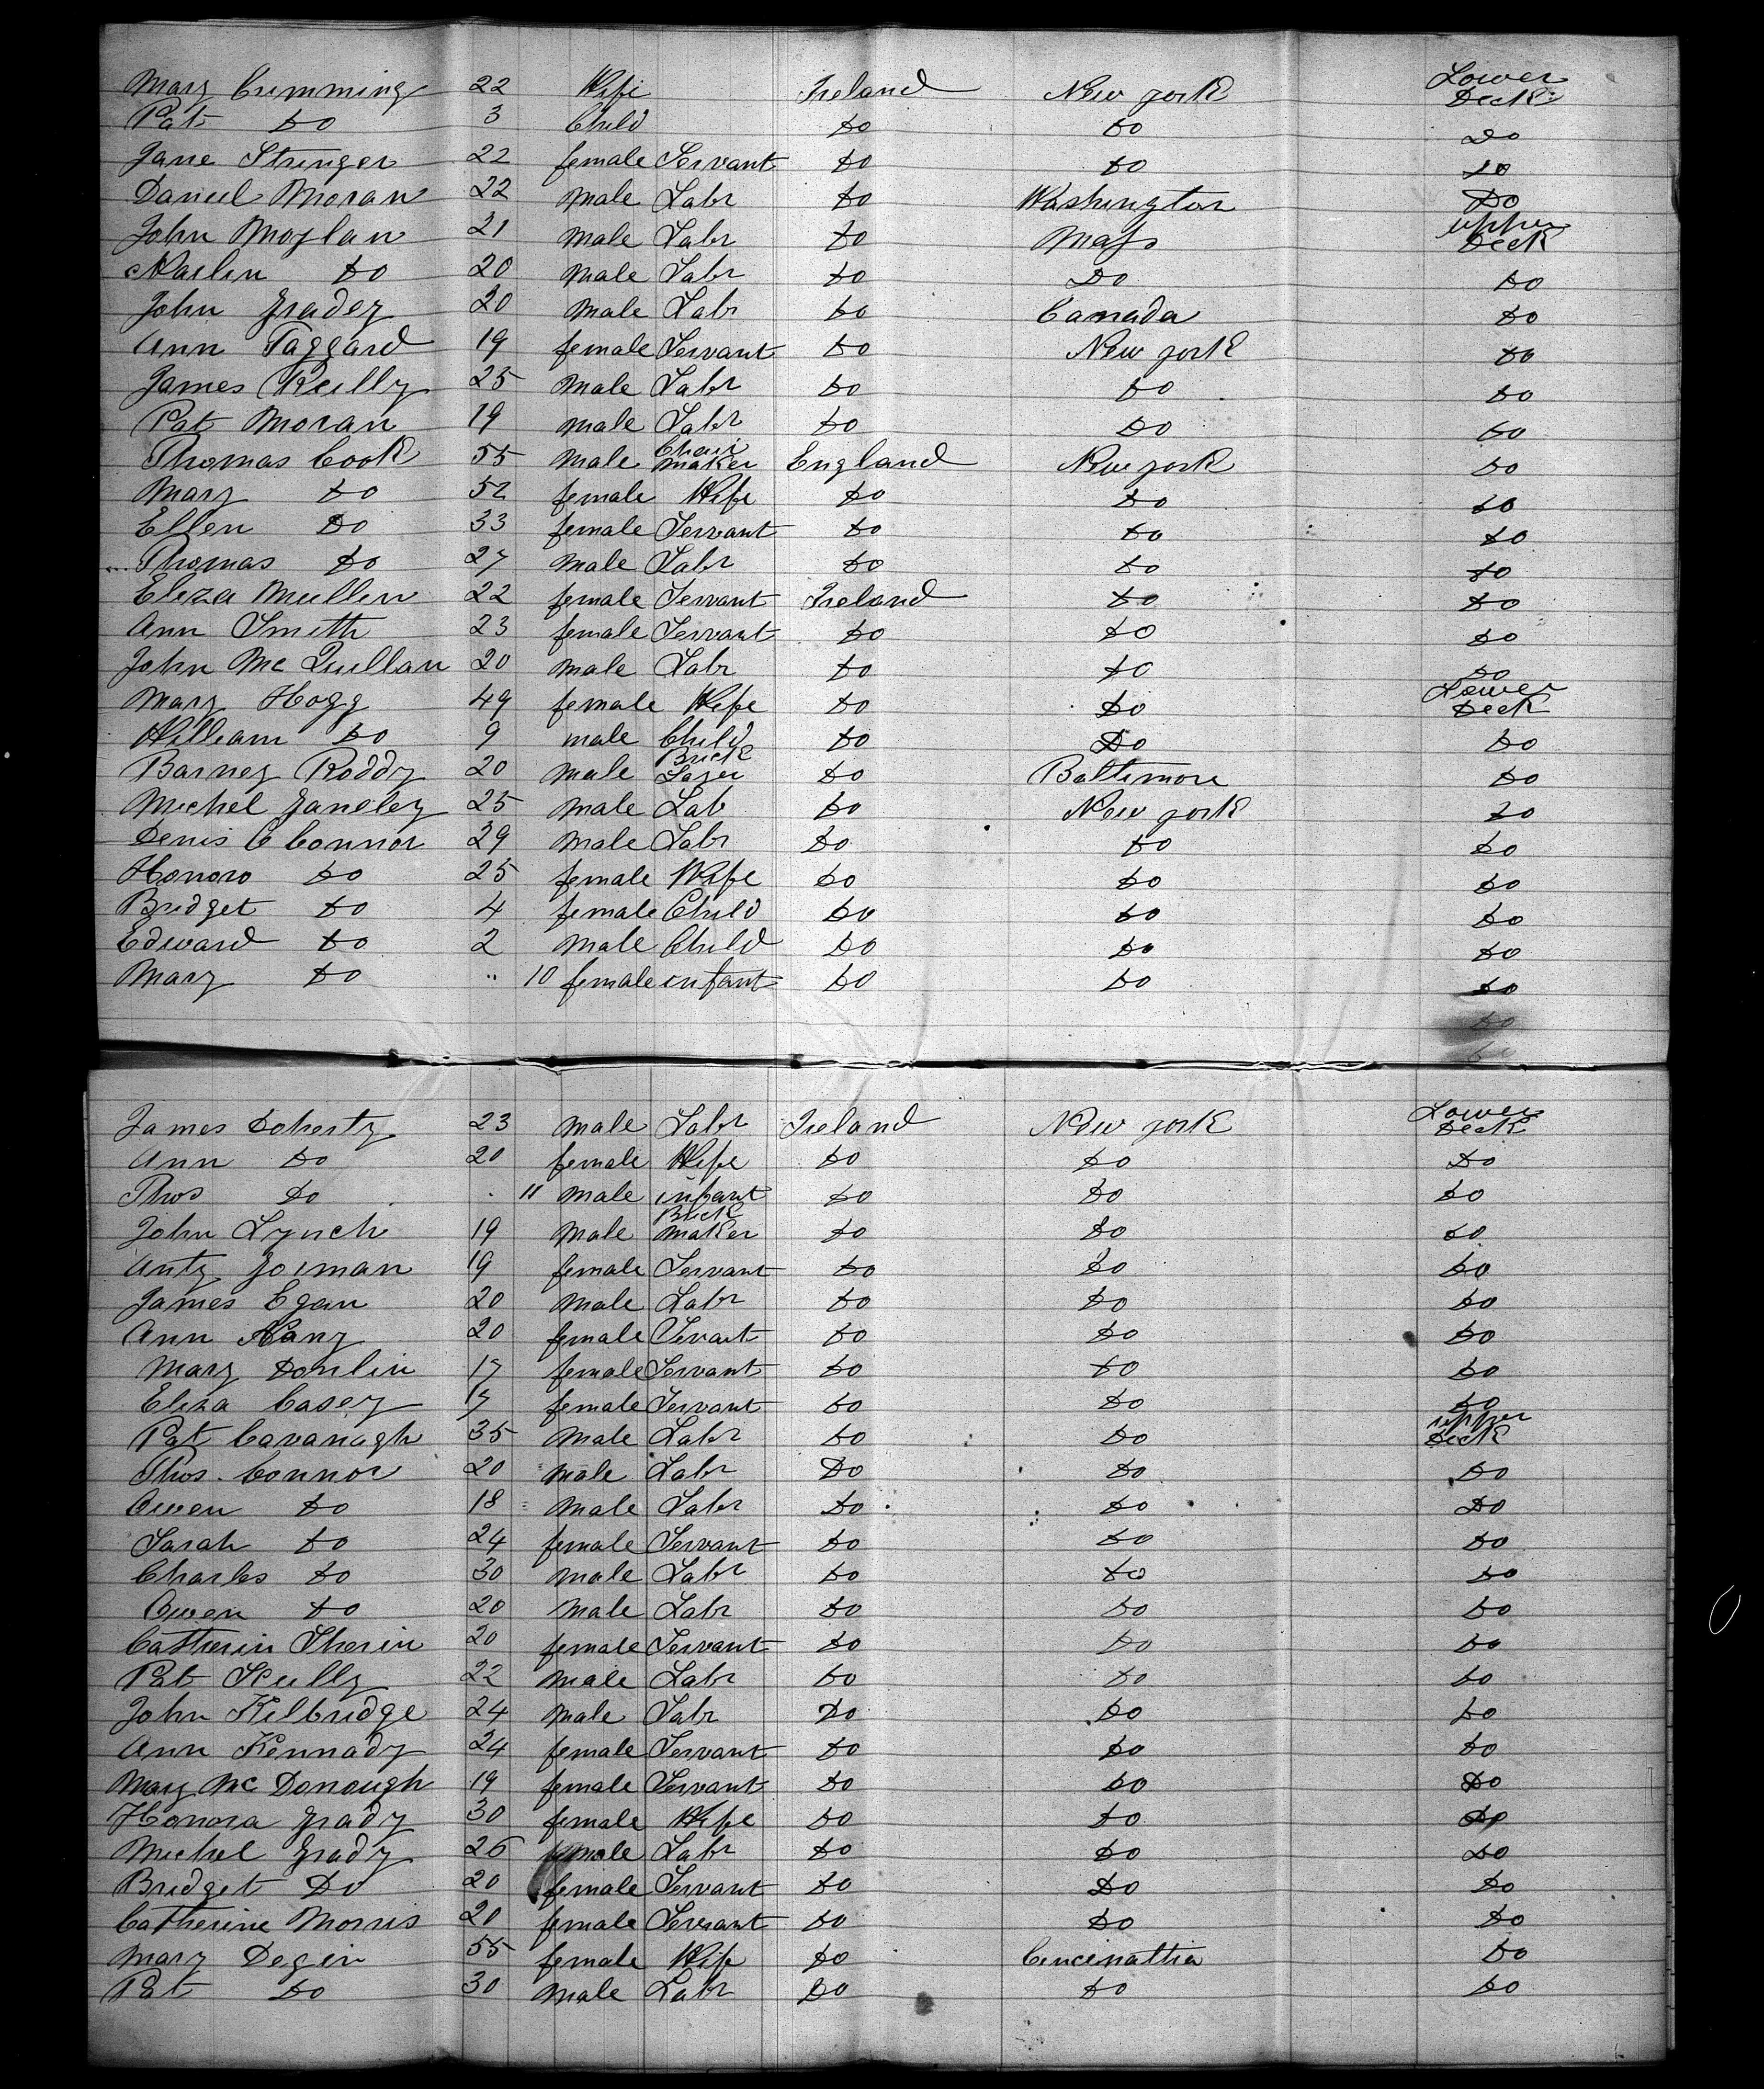 Mary Cumming 22 Wife Ireland New york Lower Deck
Pat Do 3 Child Do Do Do
Jane Stringer 22 female Servant Do Do Do
Daniel Moran 22 Male Labr Do Washington Do
John Moylan 21 Male Labr Do Mass upper Deck
Do 20 Male Labr Do Do Do
John Gradey 20 Male Labr Do Canada Do
Ann Taggard 19 female Servant Do New york Do
James Reilly 25 Male Labr Do Do Do
Pat Moran 19 male Labr Do Do Do
Thomas Cook 55 Male Chair maker England New york Do
Mary Do 52 female Wife Do Do Do
Ellen Do 33 female Servant Do Do Do
Thomas Do 27 Male Labr Do Do Do
Eliza Mullen 22 female Servant Ireland Do Do
Ann Smith 23 female Servant Do Do Do
John Mc Quillan 20 Male Labr Do Do Do
Mary Hogg 49 female Wife Do Do Lower Deck
William Do 9 male Child Do Do Do
Barney Roddy 20 Male Brick Layer Do Baltimore Do
Michel Gaveley 25 Male Lab Do New york Do
Denis O Connor 29 Male Labr Do Do Do
Honoro Do 25 female Wife Do Do Do
Bridget Do 4 female Child Do Do Do
Edward Do 2 Male Child Do Do Do
Mary Do " 10 female infant Do Do Do
Do
James Doherty 23 Male Labr Ireland New york Lower Deck
Ann Do 20 female Wife Do Do Do
Thos Do 11 Male infant Do Do Do
John Lynch 19 Male Brick Maker Do Do Do
Anty Gorman 19 female Servant Do Do Do
James Egan 20 Male Labr Do Do Do
Ann 20 female Sevant Do Do Do
Mary Donlin 17 female Servant Do Do Do
Eliza Casey 17 female Servant Do Do Do
Pat Cavanagh 35 Male Labr Do Do upper Deck
Thos. Connor 20 male Labr Do Do Do
Owen Do 18 Male Labr Do Do Do
Sarah Do 24 female Servant Do Do Do
Charles Do 30 Male Labr Do Do Do
Owen Do 20 Male Labr Do Do Do
Catherin Sherin 20 female Servant Do Do Do
Pat Scully 22 Male Labr Do Do Do
John Kilbridge 24 Male Labr Do Do Do
Ann Kennady 24 female Servant Do Do Do
Mary Mc Donough 19 female Servant Do Do Do
Honora Grady 30 female Wife Do Do Do
Michel Grady 26 male Labr Do Do Do
Bridget Do 20 female Servant Do Do Do
Catherine Morris 20 female Servant Do Do Do
Mary Degin 55 female Wife Do Cincinattia Do
Pat Do 30 Male Labr Do Do Do